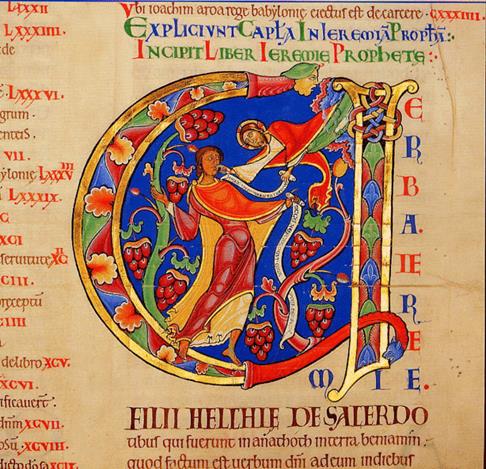 LXXXII
LXXXIIII.
de
LXXXVI.
grum.
VII.
ylonie LXXXVIII
LXXXIX.
C
XCI
seruitute XCII
CIII.
preceptū
CIIII
delibro XCV.
XCVI.
ificauert.
dnm XCVII.
XCVIII.
XCIX.
Vbi ioachim aroarege babylonie eiectus est de carcere. CXXXIIII.
EXPLICIUNT CAPLA IN IEREMIĀ PROPHĀ:.
INCIPIT LIBER IEREMIE PROPHETE:.
VERBA. IEREMIE.
FILII HELCHIE DE SACERDO
tibus qui fuerunt in anathoth in terra. beniamin.
quod factum est uerbum dni ad eum in diebus